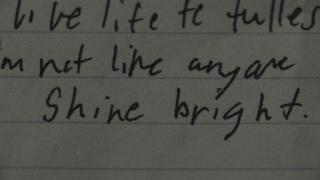 live life te fulles
m not line anyone
Shine bright.